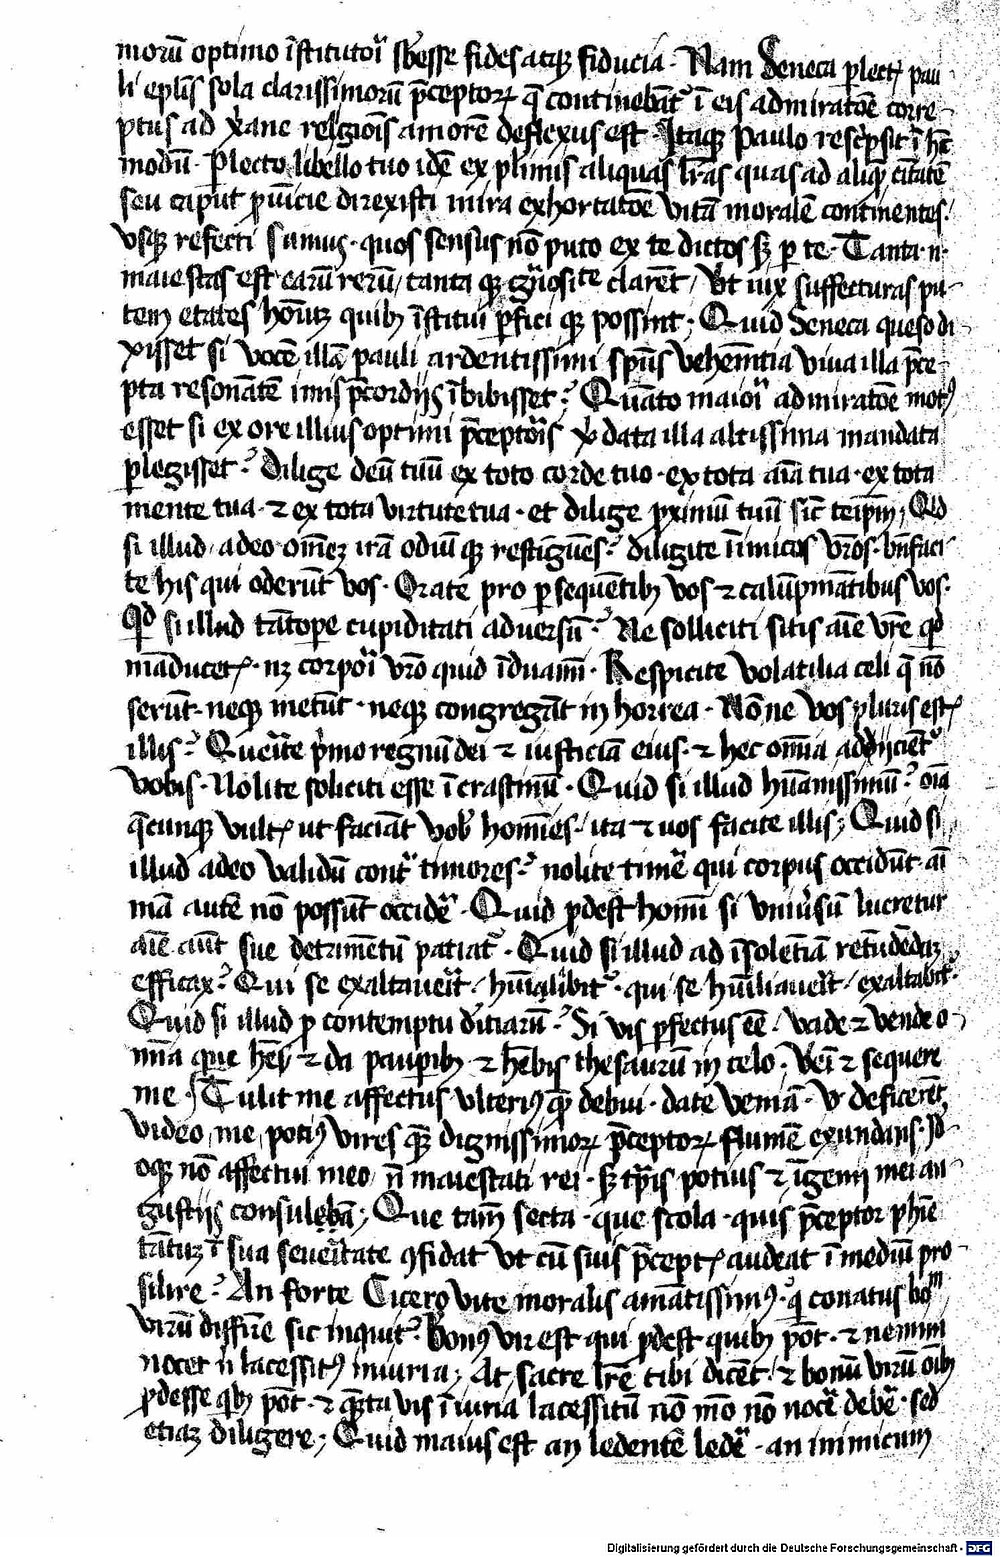 morū optimo īstitutoī sbesse fides atqꝫ fiducia · Nam Seneca plect pau
li eplis sola clarissimorū pceptoꝝ q̄ continebāt ī eis admiratōe corre
ptus ad xane religiōis amorē deflexus est · Itaqꝫ Paulo rescpsit ī hūc
modū · Plecto libello tuo idē ex plimis aliquas lras quas ad aliqꝫ ciitatē
seu caput puicie direxisti mira exhortatōe vitā moralē continentes ·
vsqꝫ refecti sumus · quos sensus nō puto ex te dictos sꝫ p te · Tanta · n ·
maiestas est earū rerū / tanta qꝫ gnosite clarēt / Vt uix suffecturas pu
tem etates hoīnꝫ quibꝫ īstitui pfici qꝫ possint ; Quid Seneca queso di
xisset si vocē illā pauli ardentissimi spūs vehemētia viua illa pce
pta resonātē imis pcordijs ībibisset ? Quāto maioī admiratōe motꝰ
esset si ex ore illius optimi pceptoris xo data illa altissima mandata
plegisset ? Dilige deū tuū ex toto corde tuo · ex tota aīa tua · ex tota
mente tua · ⁊ ex tota virtute tua · et dilige pximū tuū sic teipm ; Qd
si illud / adeo omēꝫ irā odiū qꝫ restīguēs ? diligite īimicos vros · bnfaci
te his qui oderūt vos · Orate pro psequentibꝫ vos ⁊ calūpmātibus vos ·
Qd si illud tātope cupiditati aduersū ? Ne solliciti sitis aīe vre qd
māducet · nꝫ corpoī vro quid īduamī · Respicite volatilia celi q̄ nō
serūt · neqꝫ metūt · neqꝫ congregāt in horrea · Nōne vos pluris est
illis ? Querite pmo regnū dei ⁊ iusticiā eius · ⁊ hec omīa addijciēt
vobis · Nolite soliciti esse ī crastinū · Quid si illud huānissimū ? oīa
q̄cunqꝫ vult ut faciāt vob homīes · ita ⁊ uos facite illis ; Quid si
illud adeo validū cont timores ? nolite timē qui corpus occidūt · aī
mā autē nō possūt occidē · Quid pdest homī si vniusū lucretur
aīe aūt sue detrimētū patiat · Quid si illud ad īsolētiā retūdēdaꝫ
efficax ? Qui se exaltauerit / humiliabit · qui se humiliauerit / exaltabit ·
Quid si illud p contemptu ditiarū ? Si vis pfectus eē / vade ⁊ vende o
mīa que hes ⁊ da paupibꝫ ⁊ hēbis thesaurū in celo · Vei ⁊ sequere
me / Tulit me affectus vlteriꝰ qꝫ debui · date veniā · Vr deficerēt
video me potiꝰ vires qꝫ dignissimoꝝ pceptoꝝ flumē exundans · Id
oqꝫ nō affectui meo / n̄ maiestati rei · sꝫ tpis potius ⁊ īgenij mei an
gustijs consulebā ; Que tam secta · que scola · quis pceptor phie
tātuꝫ ī sua seueritate ꝯfidat vt cū suis pcept audeat ī mediū pro
silire ? An forte Cicero vite moralis amātissimꝰ · q conatus bom
virū diffire sic inquit ? Bonꝰ vir est qui pdest quibꝫ pōt · ⁊ nemini
nocet n lacessitꝰ iniuria ; At sacre lre tibi dicēt · ⁊ bonū virū oībꝫ
pdesse qbꝫ pōt · ⁊ qta vis īiuria lacessitū nō mō nō nocē debē · sed
etiaꝫ diligere ; Quid maius est an ledentē ledē · an inimicum
Digitalisierung gefördert durch die Deutsche Forschungsgemeinschaft - DFG